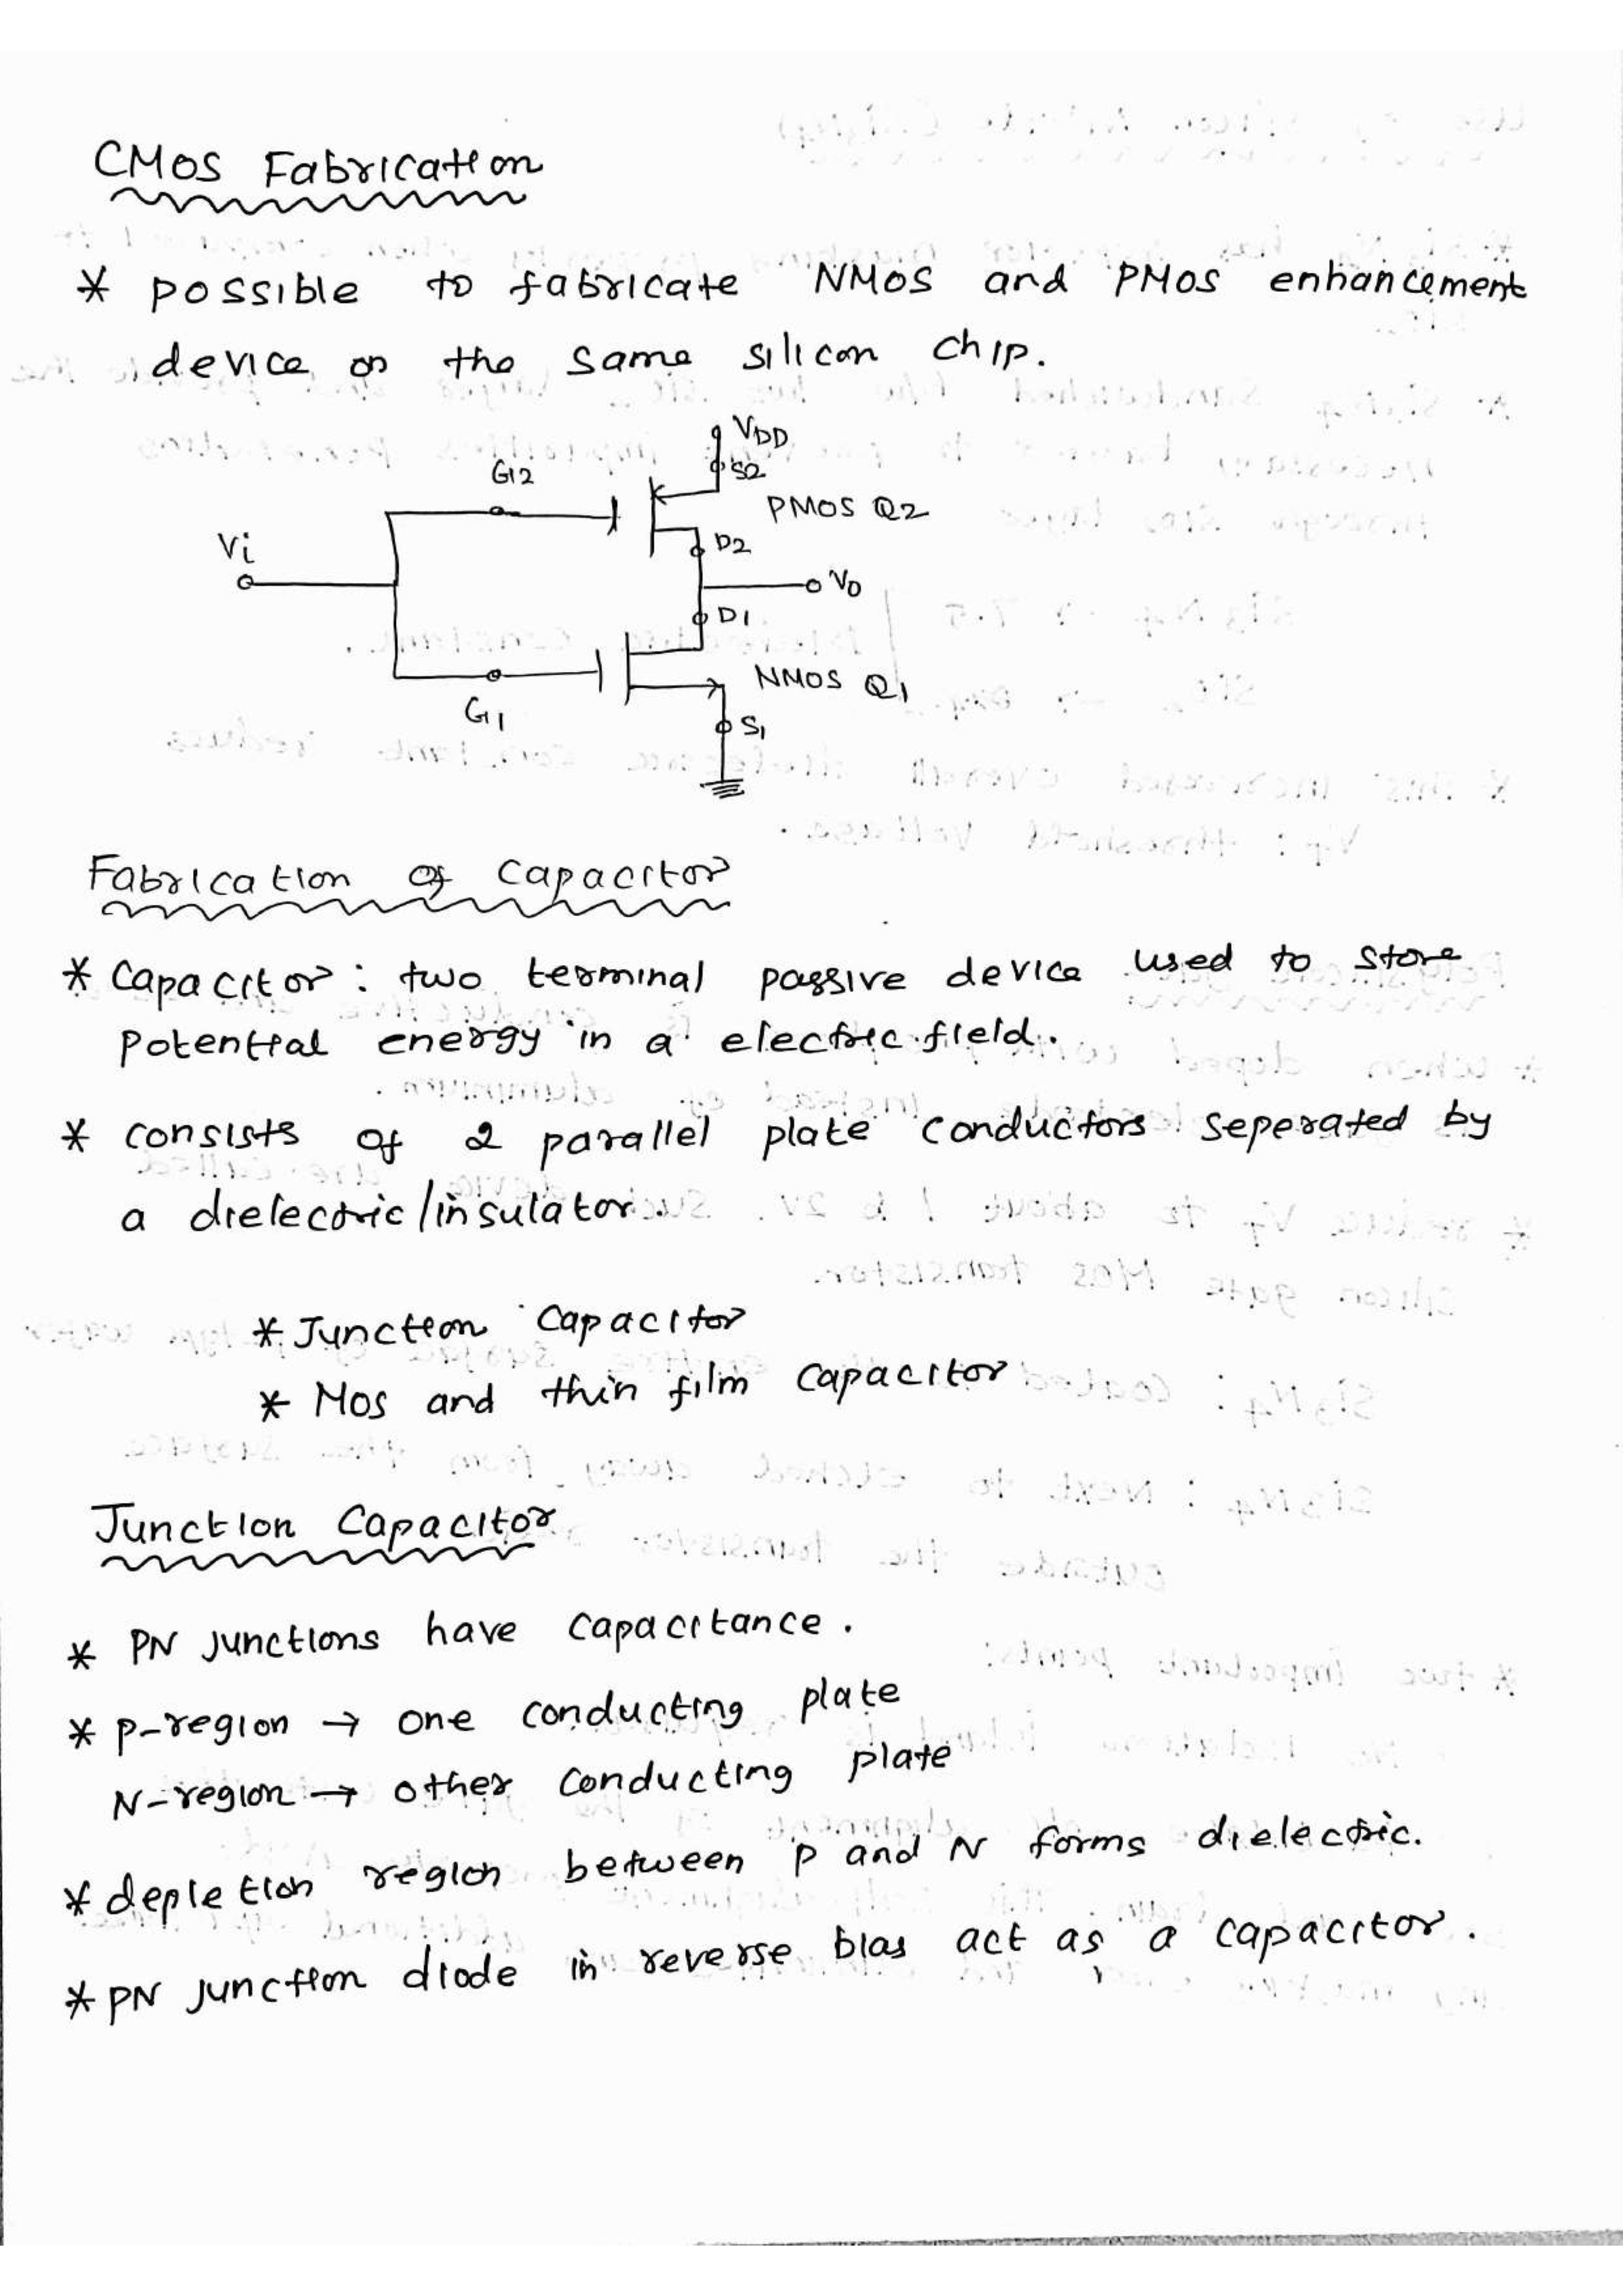 CMOS Fabrication
* possible to fabricate NMOS and PMOS enhancement
device on the same silicon chip.
VDD
S2
G2
PMOS Q2
D2
Vi
Vo
D1
NMOS Q1
G1
S1
Fabrication of Capacitor
* Capacitor : two terminal passive device used to store
potential energy in a electric field.
* consists of 2 parallel plate conductors seperated by
a dielectric/insulator
* Junction Capacitor
* Mos and thin film capacitor
Junction Capacitor
* PN junctions have capacitance.
* p-region → one conducting plate
N-region → other conducting plate
* depletion region between P and N forms dielectric.
* PN junction diode in reverse bias act as a capacitor.